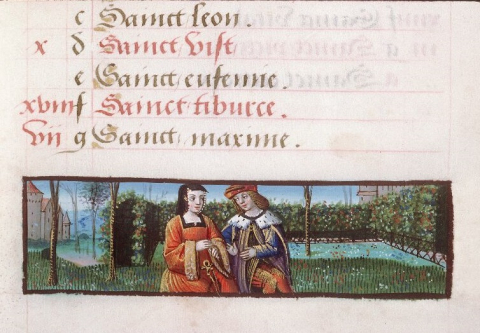 c Sainct leon.
x d Sainct vist
e Sainct eufemie.
xviii f Sainct tiburce.
vii g Sainct maxime.